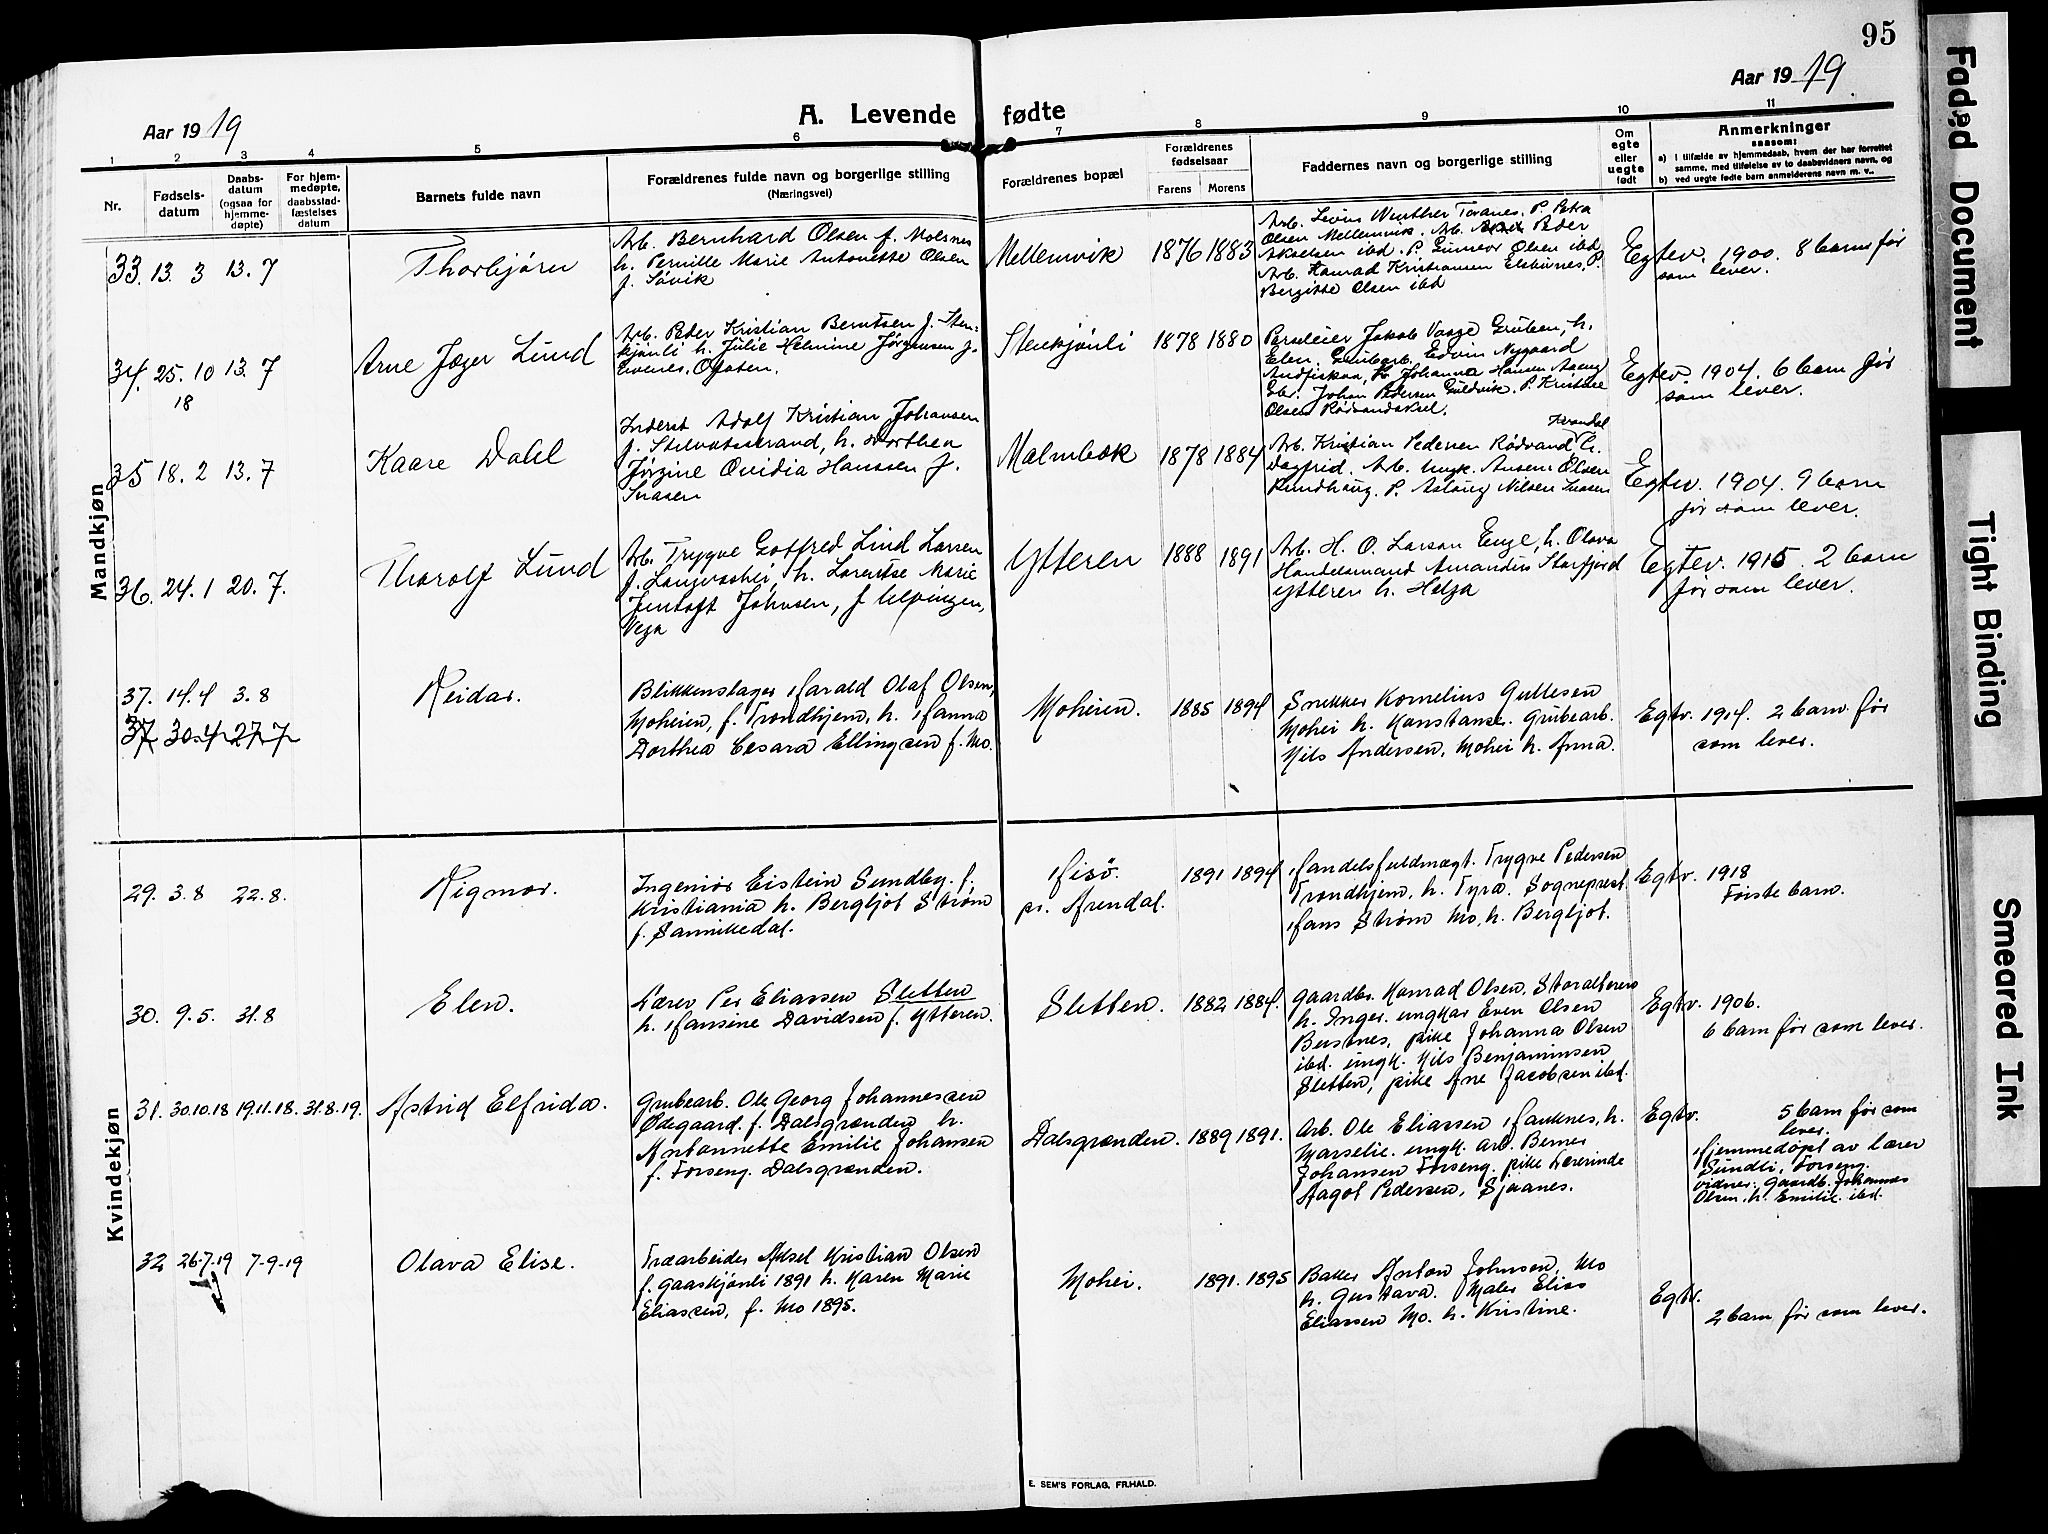 95
Aar 19 19
A. Levende fødte
Aar 19 19.
1 2 3 4 5 6 7 8 9 10 11
Nr.
Fødsels-
datum
Daabs-
datum
(ogsaa for
hjemme-
døpte)
For hjem-
medøpte,
daabsstad-
fæstelses
datum
Barnets fulde navn
Forældrenes fulde navn og borgerlige stilling
(Næringsvei)
Forældrenes bopæl
Forældrenes
fødselsaar
Farens Morens
Faddernes navn og borgerlige stilling
Om
egte
eller
uegte
født
Anmerkninger
saasom:
a) i tilfælde av hjemmedaab, hvem der har forrettet
samme, med tilføielse av to daabsvidners navn, og
b) ved uegte fødte barn anmelderens navn m. v..
Mandkjøn
33. 13. 3 13. 7
Thorbjörn
Arb. Bernhard Olsen f. Molsnes
h. Pernille Marie Antonette Olsen
f. Sövik
Mellemvik 1876 1883
Olsen Mellemvik. Arb. Peder
ibd. P. Gunvor Olsen ibd.
Arb. Konrad Kristiansen P.
Bergitte Olsen ibd
Egtev. 1900. 8 barn før
som lever.
34. 25. 10 13. 7
18
Arne Jæger Lund
Arb. Peder Kristian Berntsen f. Sten-
kjönli h. Julie Helmine Jörgensen f.
Evenes, Ofoten.
Stenkjönli 1878 1880
Parseleier Jakob Vaage Gruben, h.
Elen. Grubearb. Edvin Nygaard
Andfiskaa, h. Johanna Hansen
Johan Pedersen Guldvik. P. Kristine
Olsen Rödsandaksel.
Egtev. 1904. 6 barn før
som lever.
35 18. 2 13. 7
Kaare Dahl
Inderst Adolf Kristian Johansen
f. Stilvatsstrand, h. Dorthea
Jörgine Ovidia Hanssen f.
Snasen
Malmbæk 1878 1884
Arb. Kristian Pedersen Rödsand h.
Dagfrid. Arb. ungk. Olsen
Rundhaug. P. Aslaug Nilsen
Egtev. 1904. 9 barn
før som lever.
36. 24. 1 20. 7.
Thorolf Lund
Arb. Trygve Gotfred Lind Larsen
f. Langvashei, h. Lorentse Marie
Jentoft Johnsen, f. Ulvingen,
Vega
Ytteren 1888 1891
Arb. H. O. Larsen Enge, h. Olava
Handelsmand Amandus Storfjord
Ytteren h. Helga
Egtev. 1915. 2 barn
før som lever.
37. 14.4 3.8
37 30.4 27.7
Reidar.
Blikkenslager Harald Olaf Olsen,
Moheien, f. Trondhjem, h. Hanna
Dorthea Cesara Ellingsen f. Mo.
Moheien. 1885 1894
Snekker Kornelius Gullesen
Mohei h. Konstanse. Grubearb.
Nils Andersen, Mohei h. Anna.
Egtv. 1914. 2 barn før
som lever.
Kvindekjøn
29. 3.8 22.8.
Rigmor.
Ingeniør Eistein Sundby. f.
Kristiania h. Bergljot Strøm
f. Sannikedal.
Hisö.
pr. Arendal.
1891 1894
Handelsfuldmægt. Trygve Pedersen
Trondhjem, h. Tyra. Sogneprest
Hans Strøm Mo, h. Bergljot.
Egtv. 1918
Første barn.
30. 9.5. 31.8
Elen.
Lærer Per Eliassen Sletten
h. Hansine Davidsen f. Ytteren.
Sletten. 1882 1884.
Gaardbr. Konrad Olsen. Storalteren
h. Inger. ungkar Even Olsen
Bustnes, pike Johanna Olsen
ibd. ungk. Nils Benjaminsen
Sletten, pike Ane Jacobsen ibd.
Egtv. 1906.
6 barn før som lever.
31. 30.10.18 19.11.18. 31.8.19.
Astrid Elfrida.
Grubearb. Ole Georg Johannessen
Ødegaard. f. Dalsgrenden h.
Antonnette Emilie Johansen
f. Forseng. Dalsgrenden.
Dalsgrænden. 1889 1891.
Arb. Ole Eliassen Hauknes, h.
Marselie. ungk. arb. Bernes
Johansen Forseng. pike Lærerinde
Aagot Pedersen, Sjaanes.
Egtv. 5 barn før som
lever.
Hjemmedøpt av lærer
Sundli, Forseng.
Vidner: Gaardb. Johannes
Olsen. h. Emilie. ibd.
32 26.7.19 7-9-19
Olava Elise.
Træarbeider Aksel Kristian Olsen
f. Gaaskjønli 1891 h. Karen Marie
Eliassen, f. Mo 1895.
Mohei. 1891. 1895
Baker Anton Johnsen, Mo
h. Gustava. Maler Elias
Eliassen Mo. h. Kristine.
Egtv.
2 barn før som lever.
E. SEM'S FORLAG, FR.HALD.
Faded Document
Tight Binding
Smeared Ink